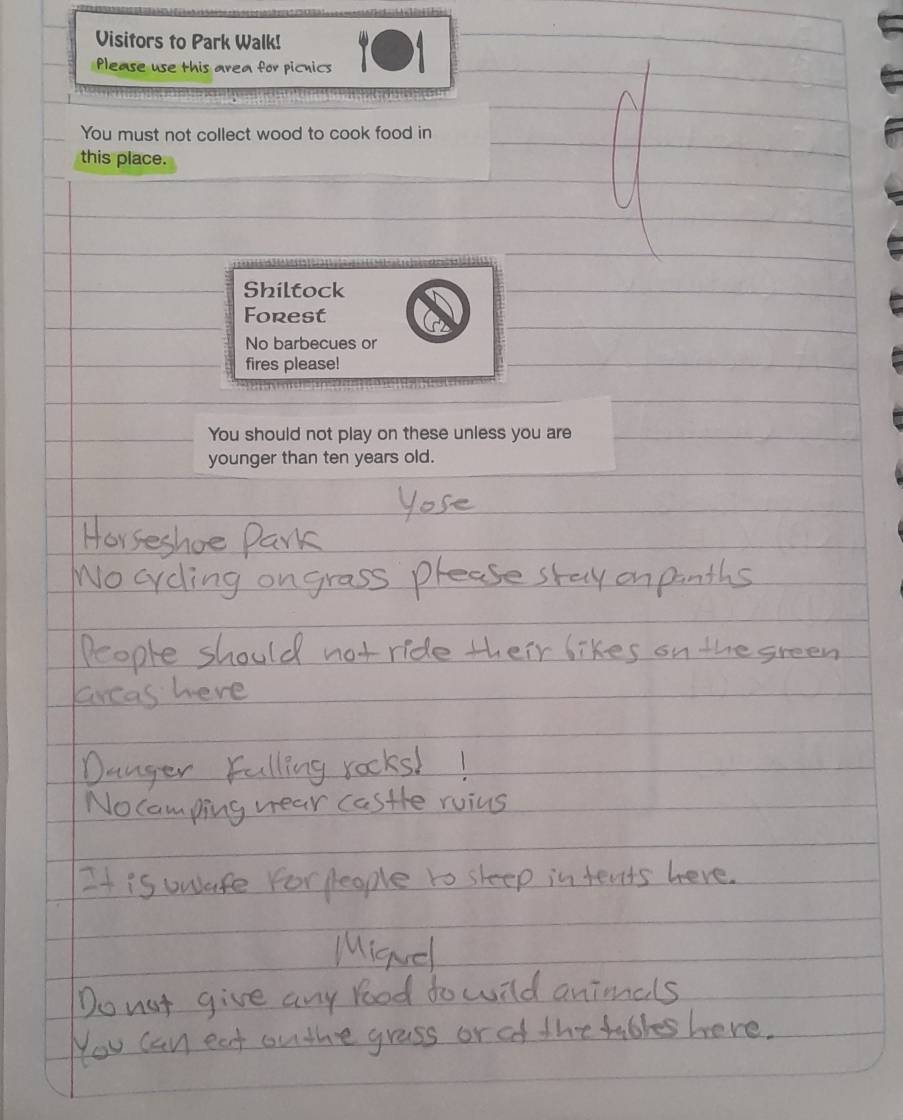 Visitors to Park Walk!
Please use this area for picnics
You must not collect wood to cook food in
this place.
Shiltock
Forest
No barbecues or
fires please!
You should not play on these unless you are
younger than ten years old.
Yose
Horseshoe Park
No cycling on grass please stay on panths
People should not ride their bikes on the green
areas here
Danger Falling rocks! !
No camping near castle ruins
It is unsafe for people to sleep in tents here.
Miguel
Do not give any food to wild animals
You can eat on the grass or at the tables here.